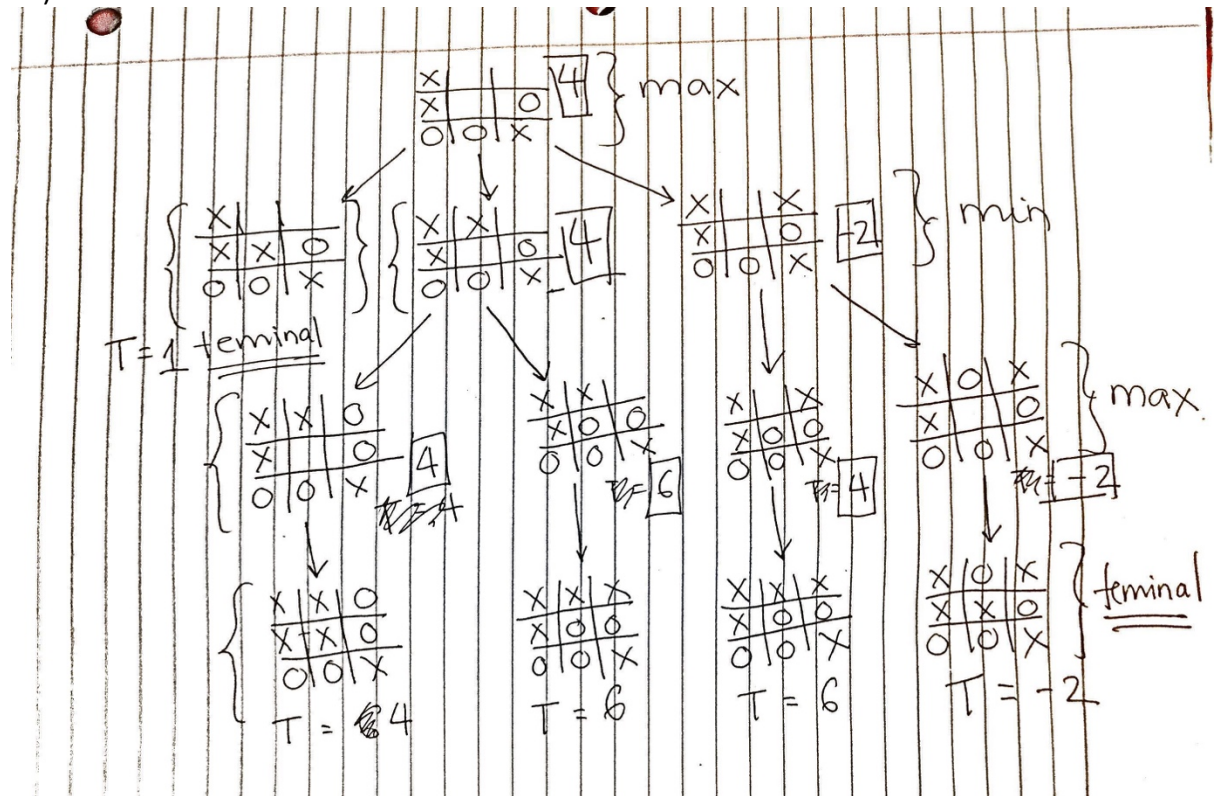 X | |
X | | O [4] } max
O | O | X
X | |
X | X | O
O | O | X
T = 1 teminal
X | X |
X | | O [4]
O | O | X
X | | X
X | | O [-2] } min
O | O | X
X | X | O
X | | O [4]
O | O | X
4
X | X |
X | O | O
O | O | X
= [6]
X | | X
X | O | O
O | O | X
= [4]
X | O | X
X | | O } max.
O | O | X
= [-2]
X | X | O
X | X | O
O | O | X
T = 4
X | X | X
X | O | O
O | O | X
T = 6
X | X | X
X | O | O
O | O | X
T = 6
X | O | X
X | X | O } teminal
O | O | X
T = -2